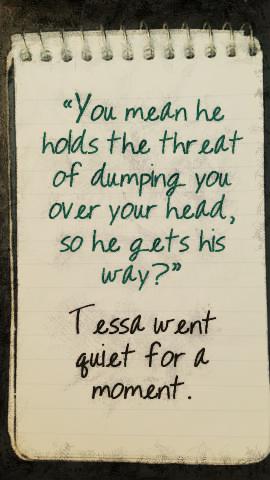 “You mean he
holds the threat
of dumping you
over your head,
so he gets his
way?”
Tessa went
quiet for a
moment.